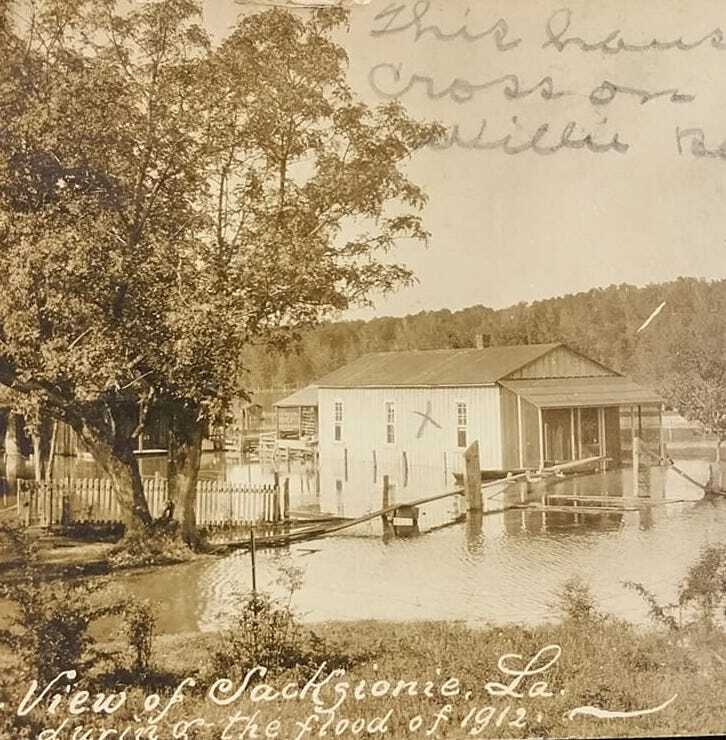 This hous
Cross on
Willie
X
View of La.
during the flood of 1912.